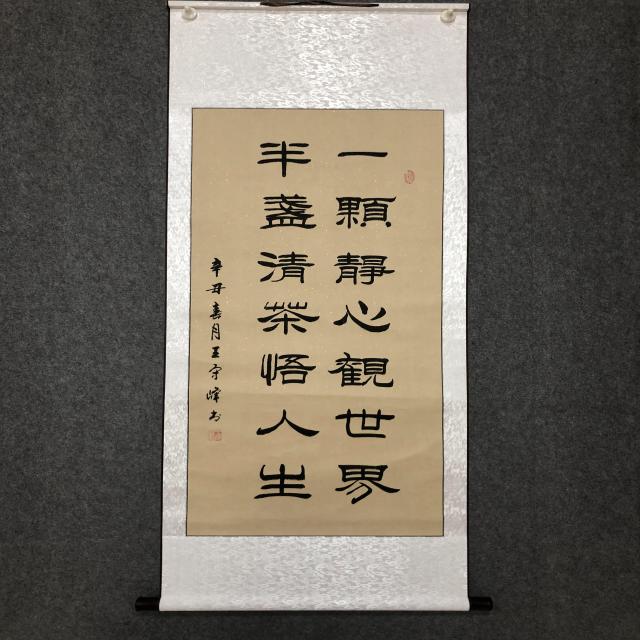 一顆靜心觀世界
半盞清茶悟人生
辛丑春月王守峰书